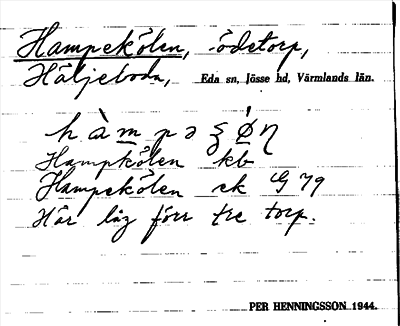 Hampekölen, ödetorp,
Häljeboda, Eda sn, Jösse hd, Värmlands län.
hàmpəʂø̀ɳ
Hampkölen kb
Hampekölen ek G 79
Här låg förr tre torp.
PER HENNINGSSON 1944.